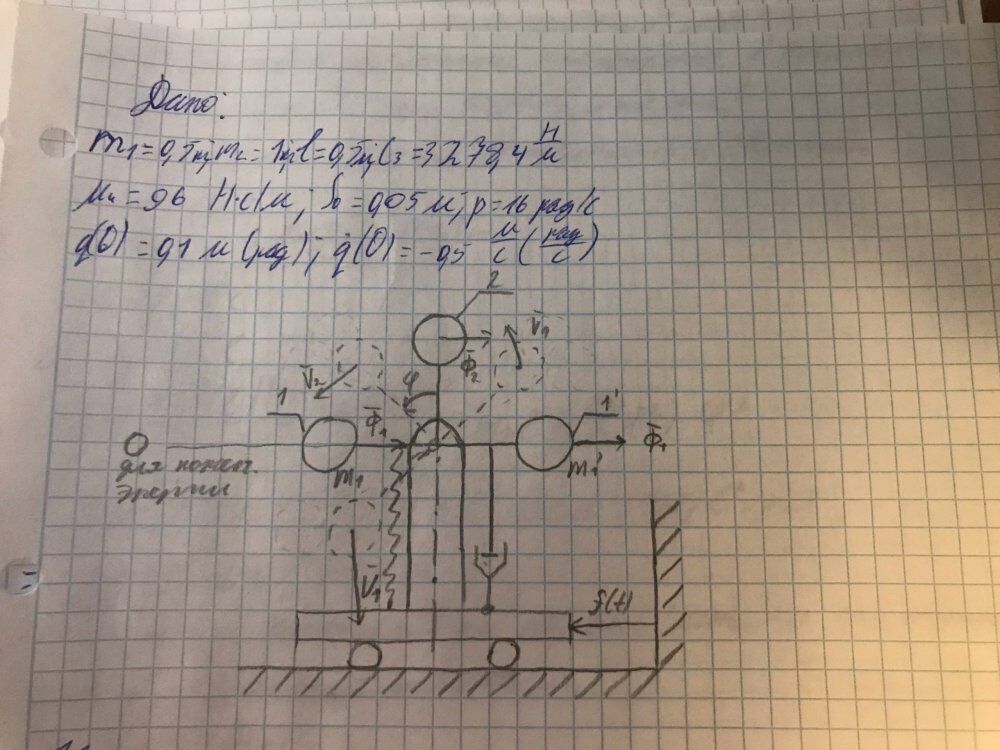 Дано:
m₁ = 0,5 кг; m₂ = 1 кг; l = 0,5 м; C₃ = 3278,4 Н/м
μ₄ = 96 Н·с/м; S₀ = 0,05 м; p = 16 рад/с
q(0) = 0,1 м (рад); q̇(0) = -0,5 м/с (рад/с)
2
V̄₁
Φ̄₂
V̄₂
φ
1
1'
Φ̄₁
Φ̄₁
0
для потен.
энергии
m₁
m₁'
V̄₁
f(t)